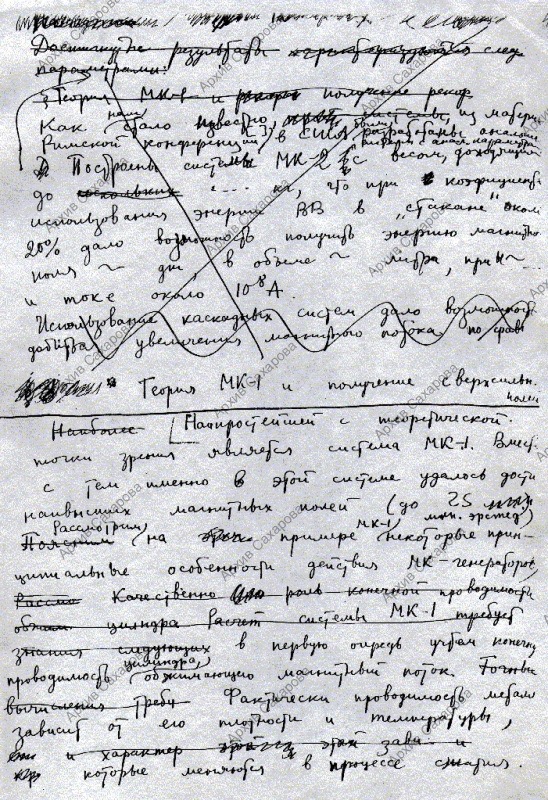 Достигнуты результаты
параметрами:
Теория МК-1 и получение рекор
Как нам стало известно, из матер.
Римской конференции, в США были разработаны аналоги
Построены системы МК-2 с весом, доходящим
до кг, что при коэффициенте
использования энергии ВВ в „стакане" около
20% дало возможность получить энергию магнитного
поля ~ дж, в объеме ~ литра, при H ~ ...
и токе около 10⁸ А.
Использование каскадных систем дало возможность
добиться увеличения магнитного потока по срав
Теория МК-1 и получение сверхсильн.
полей
Наиболее Наипростейшей с теоретической
точки зрения является система МК-1. Вместе
с тем именно в этой системе удалось дости
наивысших магнитных полей (до 25
млн. эрстед)
Поясним Рассмотрим на примере МК-1 некоторые прин-
ципиальные особенности действия МК-генераторов,
Качественно роль конечной проводимости
цилиндра Расчет системы МК-1 требует
знания следующих в первую очередь учета конечн
проводимость цилиндра, обжимающего магнитный поток. Точные
вычисления требу Фактически проводимость металл
зависит от его плотности и температуры,
и характер этой зави
которые меняются в процессе сжатия.
Архив Сахарова